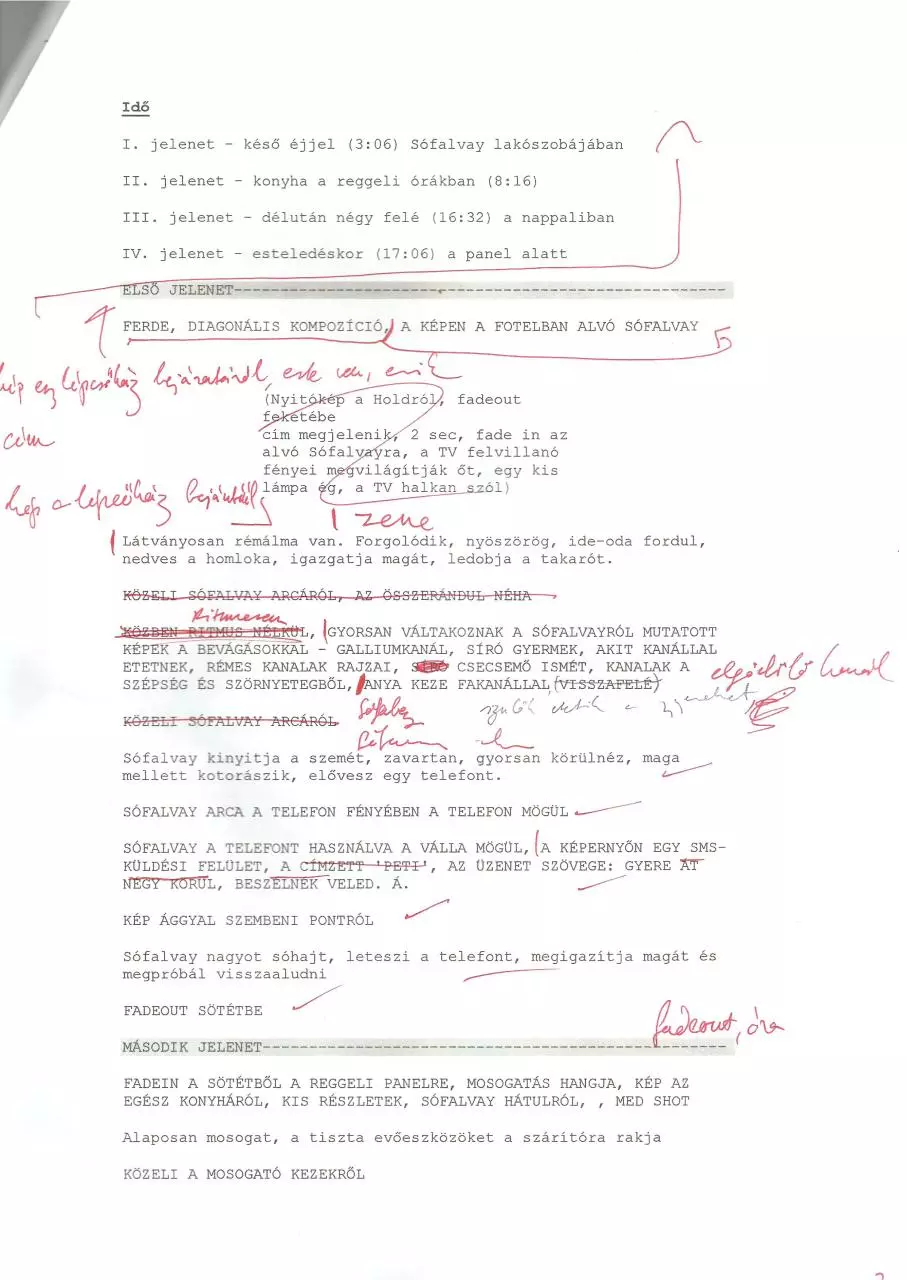 Idő
I. jelenet - késő éjjel (3:06) Sófalvay lakószobájában
II. jelenet - konyha a reggeli órákban (8:16)
III. jelenet - délután négy felé (16:32) a nappaliban
IV. jelenet - esteledéskor (17:06) a panel alatt
ELSŐ JELENET------------------------------------------------------
FERDE, DIAGONÁLIS KOMPOZÍCIÓ, A KÉPEN A FOTELBAN ALVÓ SÓFALVAY
kép egy lépcsőház bejáratáról, este van,
(Nyitókép a Holdról, fadeout
feketébe
cím
cím megjelenik, 2 sec, fade in az
alvó Sófalvayra, a TV felvillanó
fényei megvilágítják őt, egy kis
lámpa ég, a TV halkan szól)
kép a lépcsőház
zene
Látványosan rémálma van. Forgolódik, nyöszörög, ide-oda fordul,
nedves a homloka, igazgatja magát, ledobja a takarót.
KÖZELI SÓFALVAY ARCÁRÓL, AZ ÖSSZERÁNDUL NÉHA
Ritmusan
KÖZBEN RITMUS NÉLKÜL, GYORSAN VÁLTAKOZNAK A SÓFALVAYRÓL MUTATOTT
KÉPEK A BEVÁGÁSOKKAL - GALLIUMKANÁL, SÍRÓ GYERMEK, AKIT KANÁLLAL
ETETNEK, RÉMES KANALAK RAJZAI, SÍRÓ CSECSEMŐ ISMÉT, KANALAK A
SZÉPSÉG ÉS SZÖRNYETEGBŐL, ANYA KEZE FAKANÁLLAL (VISSZAFELÉ)
szülők etetik a gyereket
KÖZELI SÓFALVAY ARCÁRÓL
Sófalvay kinyitja a szemét, zavartan, gyorsan körülnéz, maga
mellett kotorászik, elővesz egy telefont.
SÓFALVAY ARCA A TELEFON FÉNYÉBEN A TELEFON MÖGÜL
SÓFALVAY A TELEFONT HASZNÁLVA A VÁLLA MÖGÜL, A KÉPERNYŐN EGY SMS-
KÜLDÉSI FELÜLET, A CÍMZETT 'PETI', AZ ÜZENET SZÖVEGE: GYERE ÁT
NÉGY KÖRÜL, BESZÉLNÉK VELED. Á.
KÉP ÁGGYAL SZEMBENI PONTRÓL
Sófalvay nagyot sóhajt, leteszi a telefont, megigazítja magát és
megpróbál visszaaludni
FADEOUT SÖTÉTBE
fadeout, óra
MÁSODIK JELENET---------------------------------------------------
FADEIN A SÖTÉTBŐL A REGGELI PANELRE, MOSOGATÁS HANGJA, KÉP AZ
EGÉSZ KONYHÁRÓL, KIS RÉSZLETEK, SÓFALVAY HÁTULRÓL, , MED SHOT
Alaposan mosogat, a tiszta evőeszközöket a szárítóra rakja
KÖZELI A MOSOGATÓ KEZEKRŐL